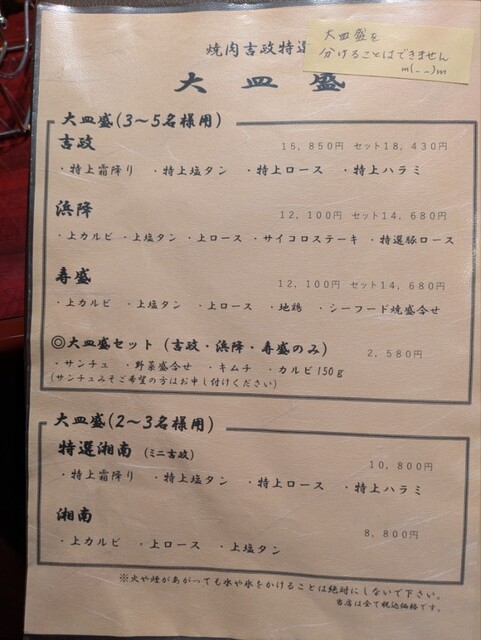 焼肉吉政特選
大皿盛を
分けることはできません
m(_ _)m
大皿盛
大皿盛(3～5名様用)
吉政 15,850円 セット18,430円
・特上霜降り ・特上塩タン ・特上ロース ・特上ハラミ
浜降 12,100円 セット14,680円
・上カルビ ・上塩タン ・上ロース ・サイコロステーキ ・特選豚ロース
寿盛 12,100円 セット14,680円
・上カルビ ・上塩タン ・上ロース ・地鶏 ・シーフード焼盛合せ
◎大皿盛セット(吉政・浜降・寿盛のみ) 2,580円
・サンチュ ・野菜盛合せ ・キムチ ・カルビ150g
(サンチュみそご希望の方はお申し付けください)
大皿盛(2～3名様用)
特選湘南 (ミニ吉政) 10,800円
・特上霜降り ・特上塩タン ・特上ロース ・特上ハラミ
湘南 8,800円
・上カルビ ・上ロース ・上塩タン
※火や煙があがっても水や氷をかけることは絶対にしないで下さい。
当店は全て税込価格です。